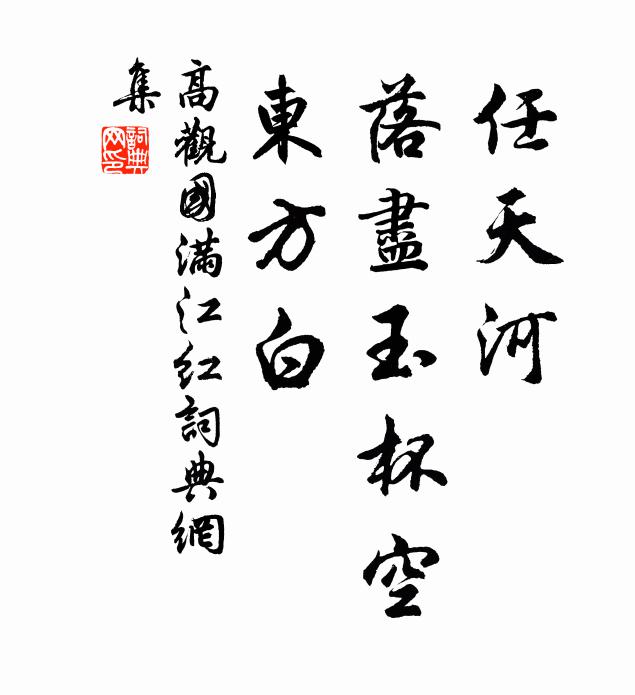 任天河
落盡玉杯空
東方白
高觀國滿江紅詞典網
集
詞典
网印